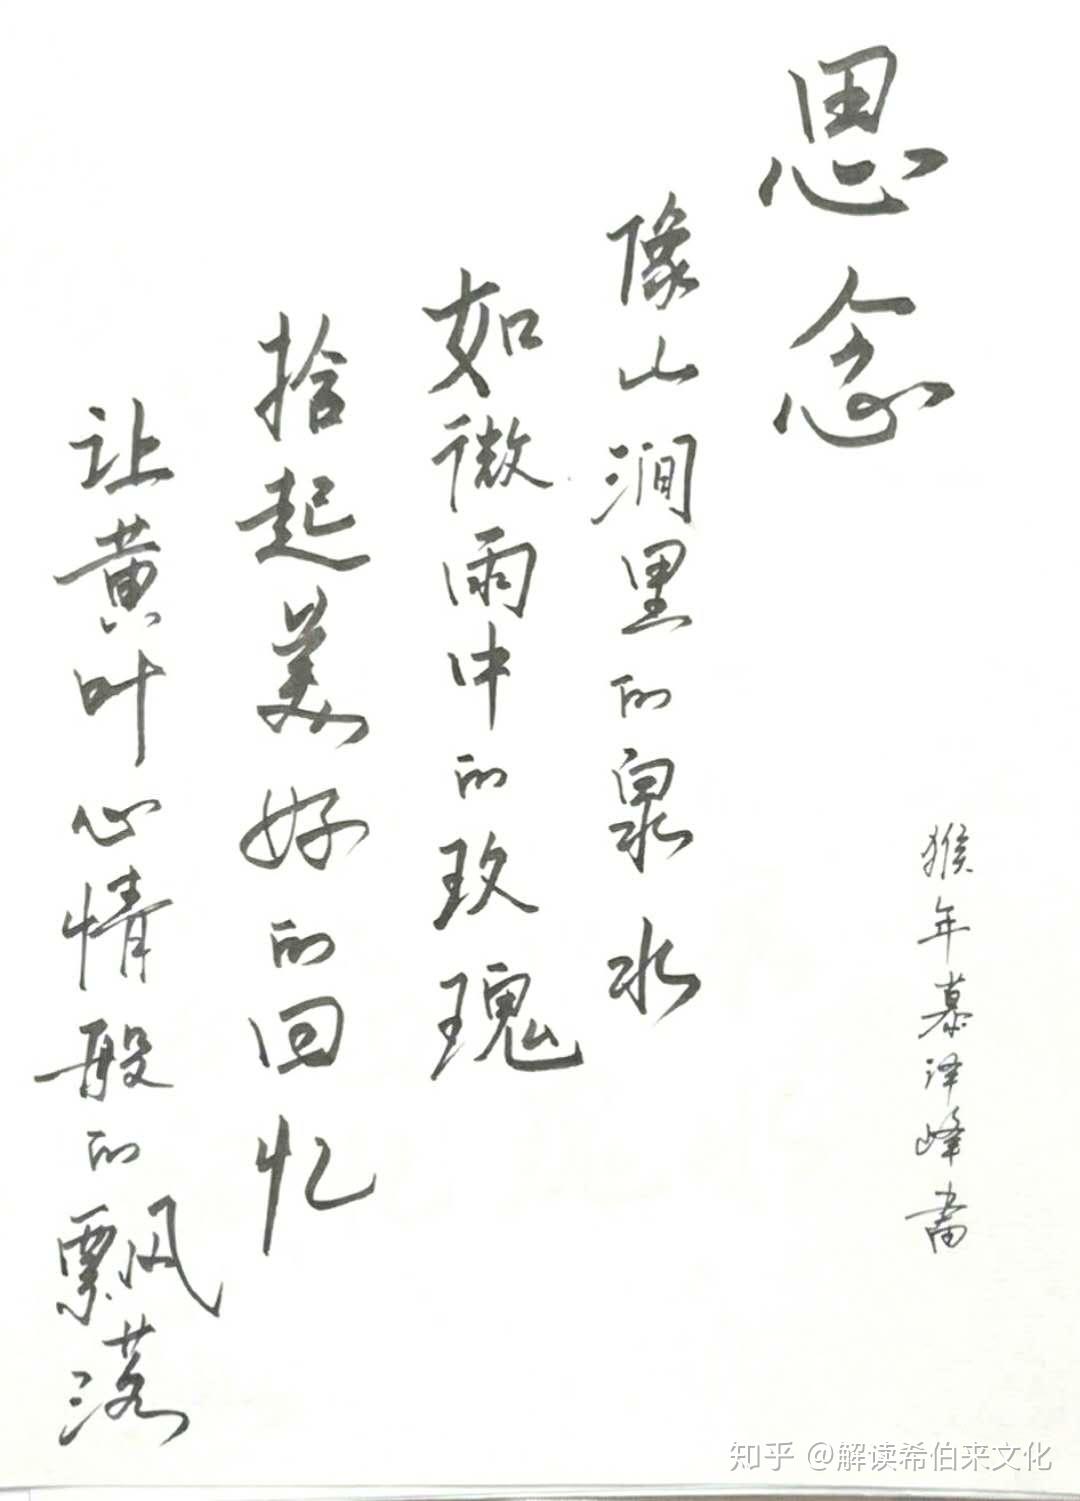 思念
像山涧里的泉水
如微雨中的玫瑰
拾起美好的回忆
让黄叶心情般的飘落
猴年慕泽峰書
知乎 @解读希伯来文化